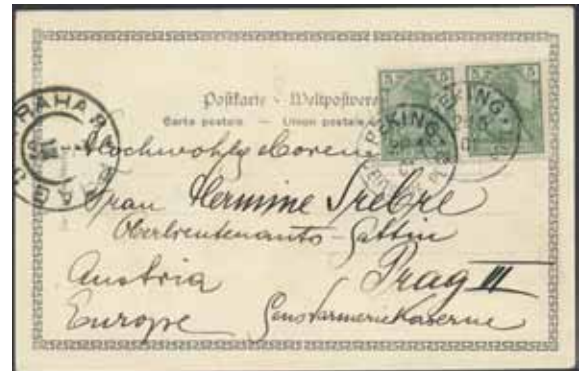 Postkarte - Weltpostverein
Carte postale. — Union postale
5 5
PEKING
PEKING
PRAHA
Hochwohlgeboren
Frau Hermine Srebre
Oberlieutenants-Gattin
Austria Prag III
Europe Gensdarmeriekaserne